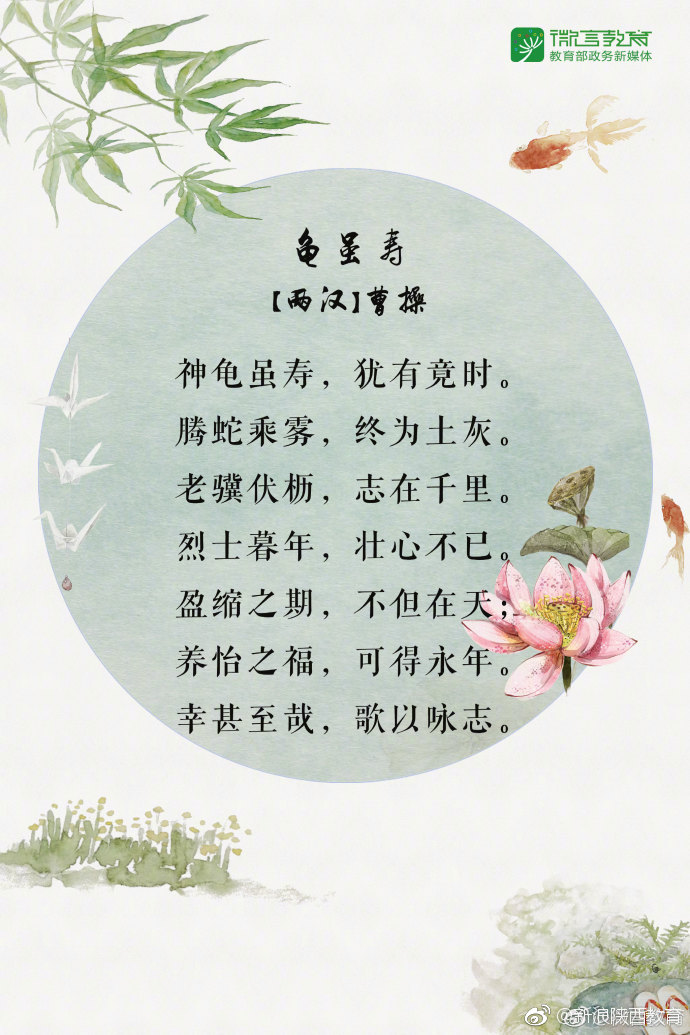 微言教育
教育部政务新媒体
龟虽寿
【两汉】曹操
神龟虽寿，犹有竟时。
腾蛇乘雾，终为土灰。
老骥伏枥，志在千里。
烈士暮年，壮心不已。
盈缩之期，不但在天；
养怡之福，可得永年。
幸甚至哉，歌以咏志。
@新浪陕西教育